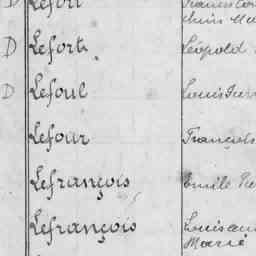 D Lefort
D Lefort Léopold
D Lefoul Louis
Lefour François
Lefrançois Emile
Lefrançois Louis
Marie